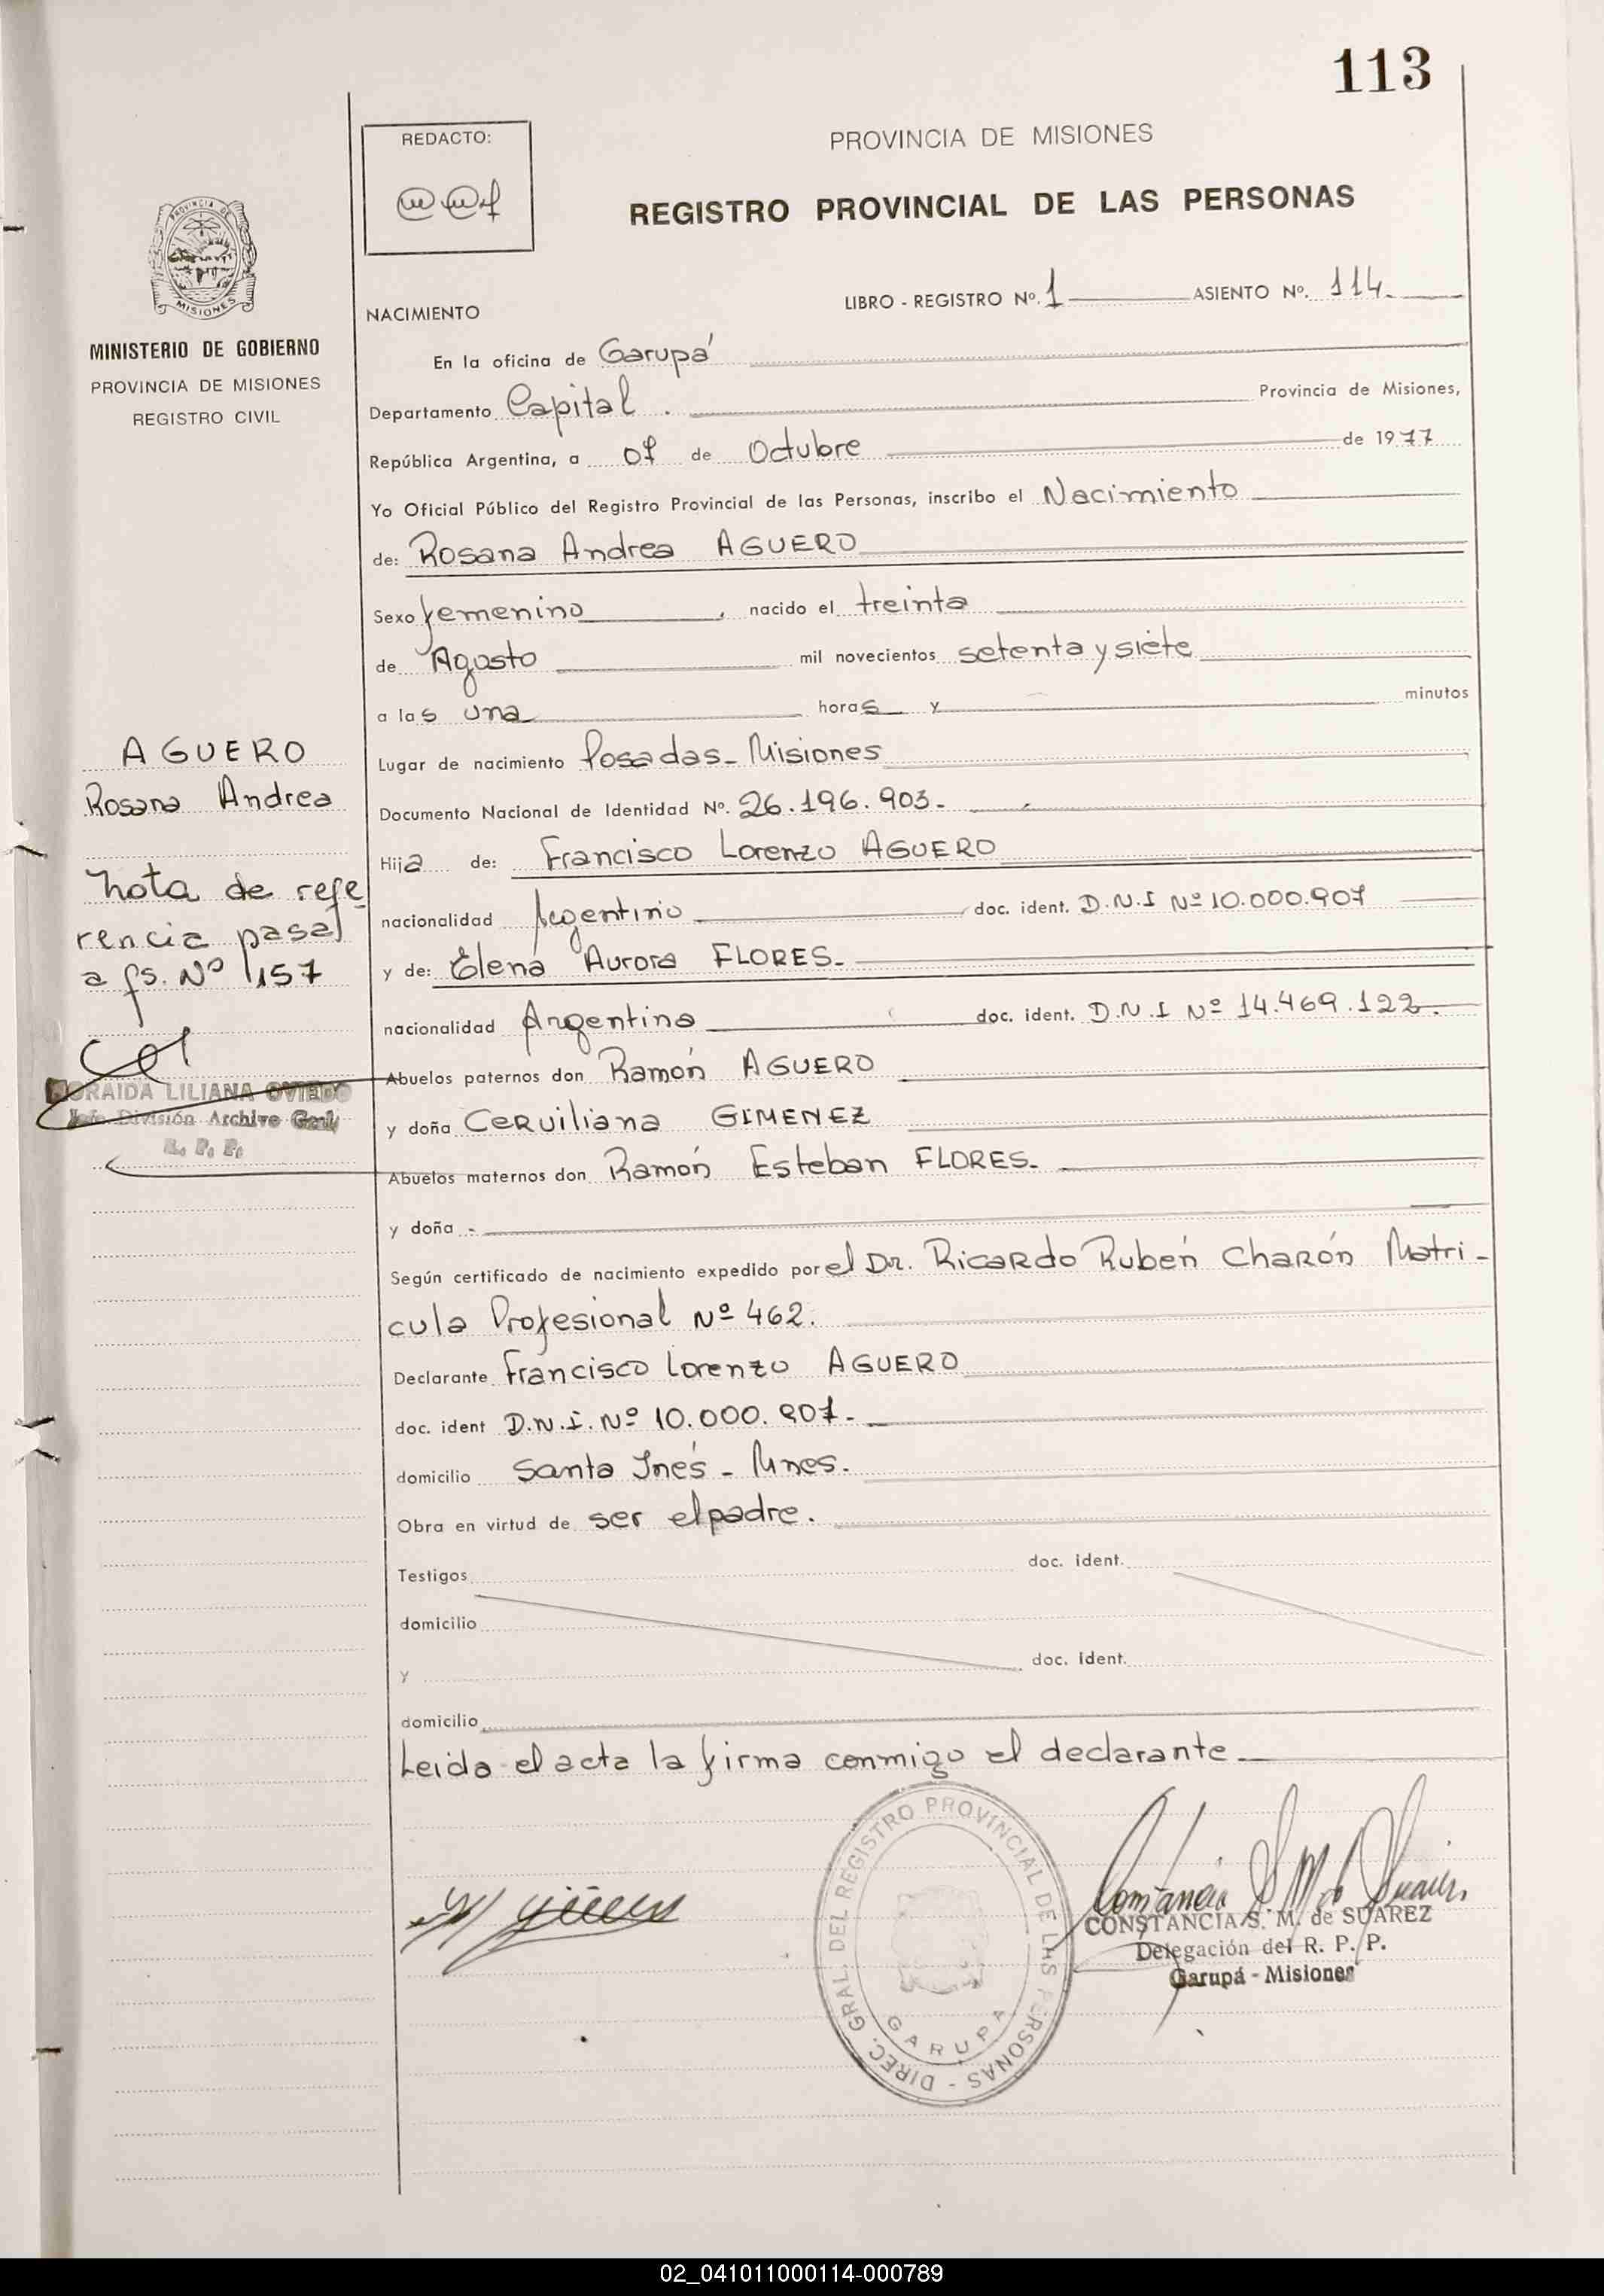 113
REDACTO:
PROVINCIA DE MISIONES
REGISTRO PROVINCIAL DE LAS PERSONAS
PROVINCIA DE
MISIONES
MINISTERIO DE GOBIERNO
PROVINCIA DE MISIONES
REGISTRO CIVIL
NACIMIENTO
LIBRO - REGISTRO Nº. 1 ASIENTO Nº. 114.
En la oficina de Garupá
Departamento Capital . Provincia de Misiones,
República Argentina, a 07 de Octubre de 1977
Yo Oficial Público del Registro Provincial de las Personas, inscribo el Nacimiento
de: Rosana Andrea AGUERO
Sexo femenino , nacido el treinta
de Agosto mil novecientos setenta y siete
a las una horas y minutos
Lugar de nacimiento Posadas - Misiones
Documento Nacional de Identidad Nº. 26.196.903.-
Hija de: Francisco Lorenzo AGUERO
nacionalidad Argentino doc. ident. D.N.I Nº 10.000.907
y de: Elena Aurora FLORES.-
nacionalidad Argentina doc. ident. D.N.I Nº 14.469.122.
Abuelos paternos don Ramón AGUERO
y doña Cerviliana GIMENEZ
Abuelos maternos don Ramón Esteban FLORES.-
y doña -
Según certificado de nacimiento expedido por el Dr. Ricardo Rubén Charón Matri-
cula Profesional Nº 462.
Declarante Francisco Lorenzo AGUERO
doc. ident D.N.I. Nº 10.000.907.-
domicilio Santa Inés - Mnes.
Obra en virtud de ser el padre.
Testigos doc. ident.
domicilio
y doc. ident.
domicilio
Leida el acta la firma conmigo el declarante
AGUERO
Rosana Andrea
Nota de refe
rencia pasa
a fs. Nº 157
ORAIDA LILIANA OVIEDO
Jefe División Archivo Gral
R. P. P.
DIREC. GRAL. DEL REGISTRO PROVINCIAL DE LAS PERSONAS -
GARUPA
CONSTANCIA S. M. de SUAREZ
Delegación del R. P. P.
Garupá - Misiones
02_041011000114-000789